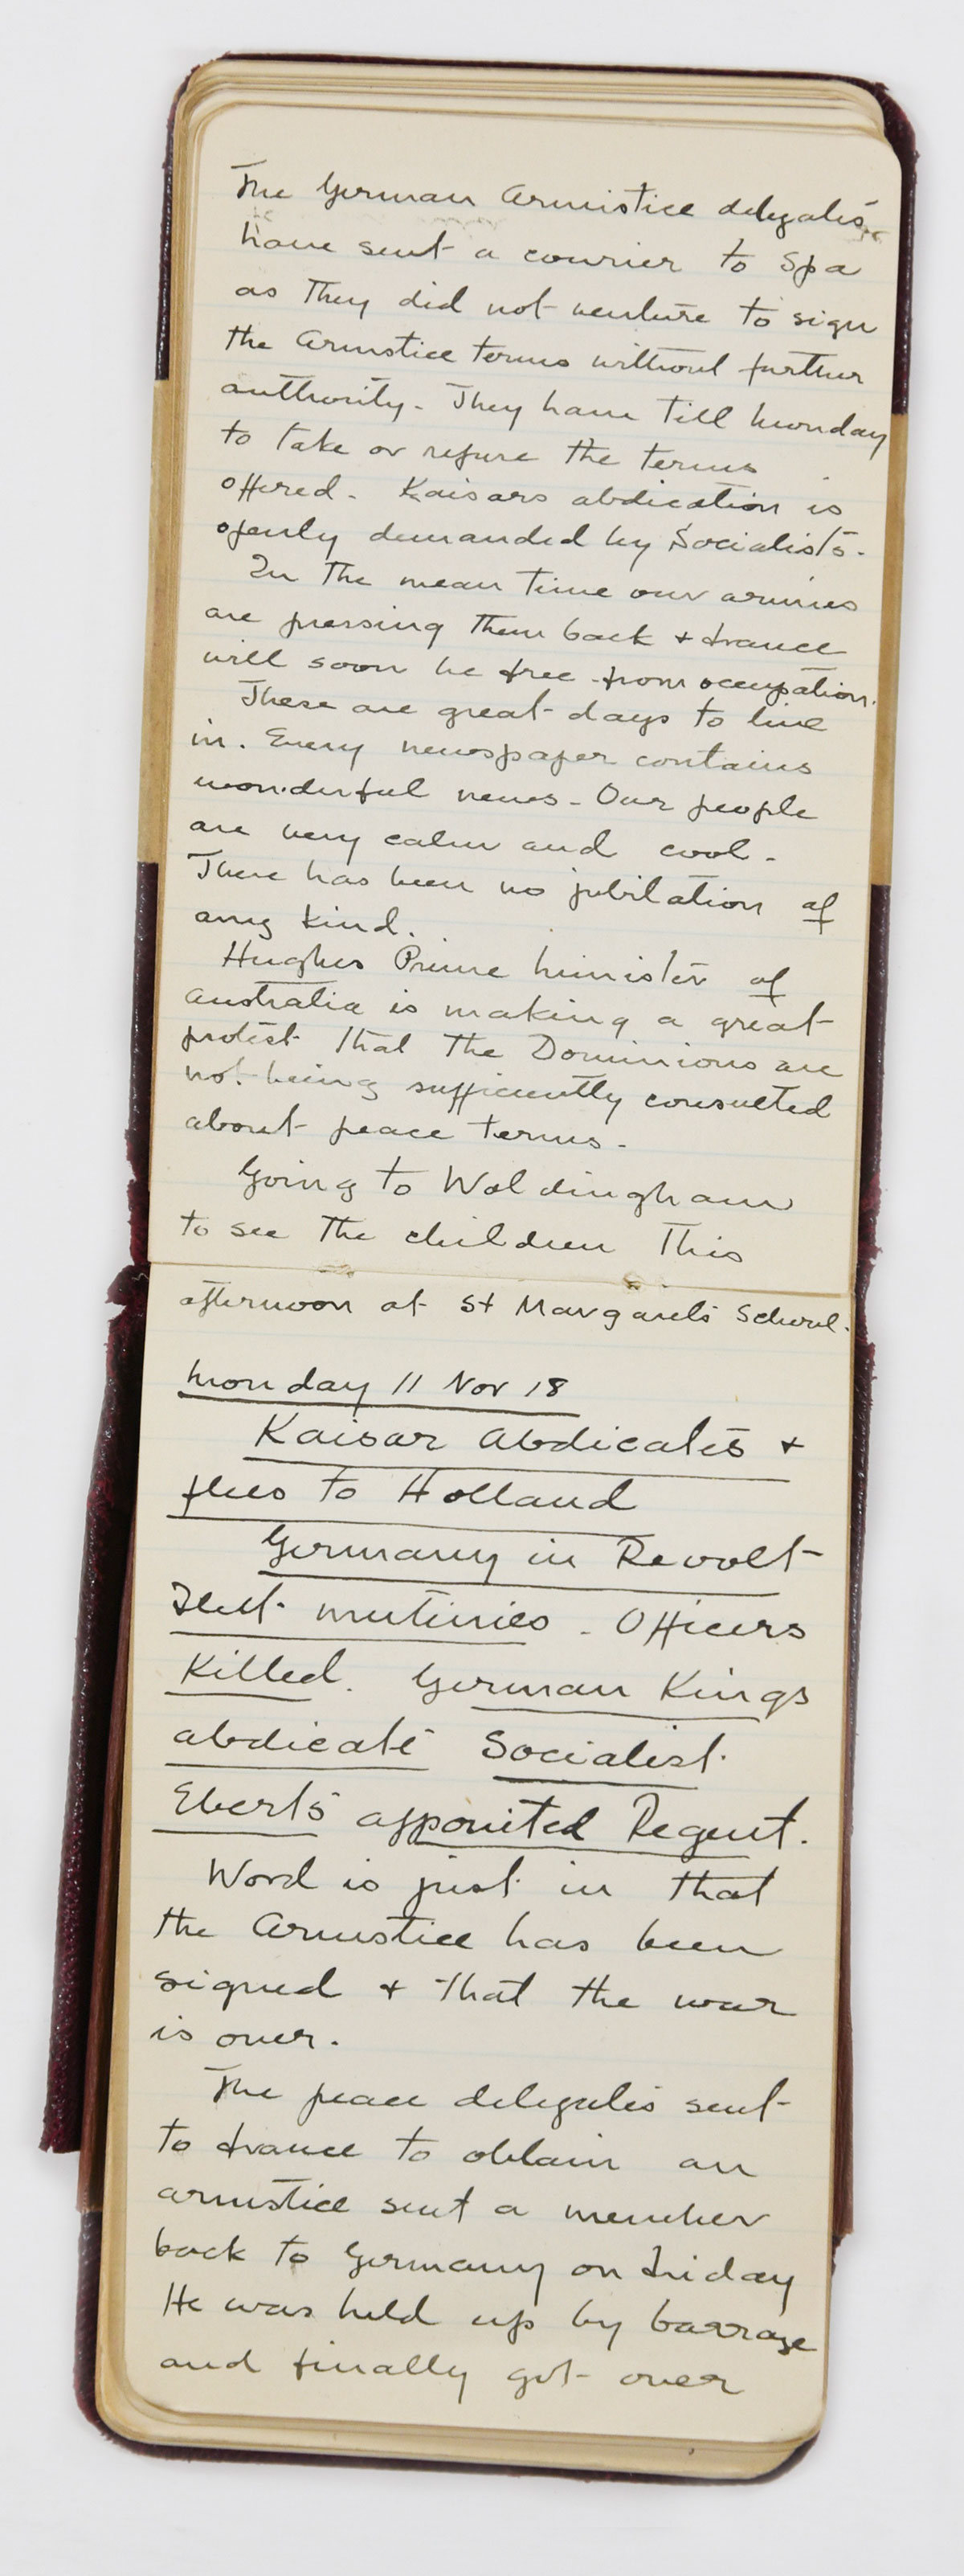 The German Armistice delegates
have sent a courier to Spa
as they did not venture to sign
the Armstice terms without further
authority. They have till Monday
to take or refuse the terms
offered. Kaisars abdication is
openly demanded by Socialists.
In the mean time our armies
are pressing them back + France
will soon be free from occupation.
These are great days to live
in. Every newspaper contains
wonderful news. Our people
are very calm and cool.
There has been no jubilation of
any kind.
Hughes Prime Minister of
Australia is making a great
protest that the Dominions are
not being sufficiently consulted
about peace terms.
Going to Woldingham
to see the children This
afternoon at St Margarets School.
Monday 11 Nov 18
Kaisar Abdicates +
flees to Holland
Germany in Revolt
Fleet mutinies. Officers
Killed. German Kings
abdicate Socialist
Eberts appointed Regent.
Word is just in that
the Armstice has been
signed + that the war
is over.
The peace delegates sent
to France to obtain an
armstice sent a member
back to Germany on Friday
He was held up by barrage
and finally got over